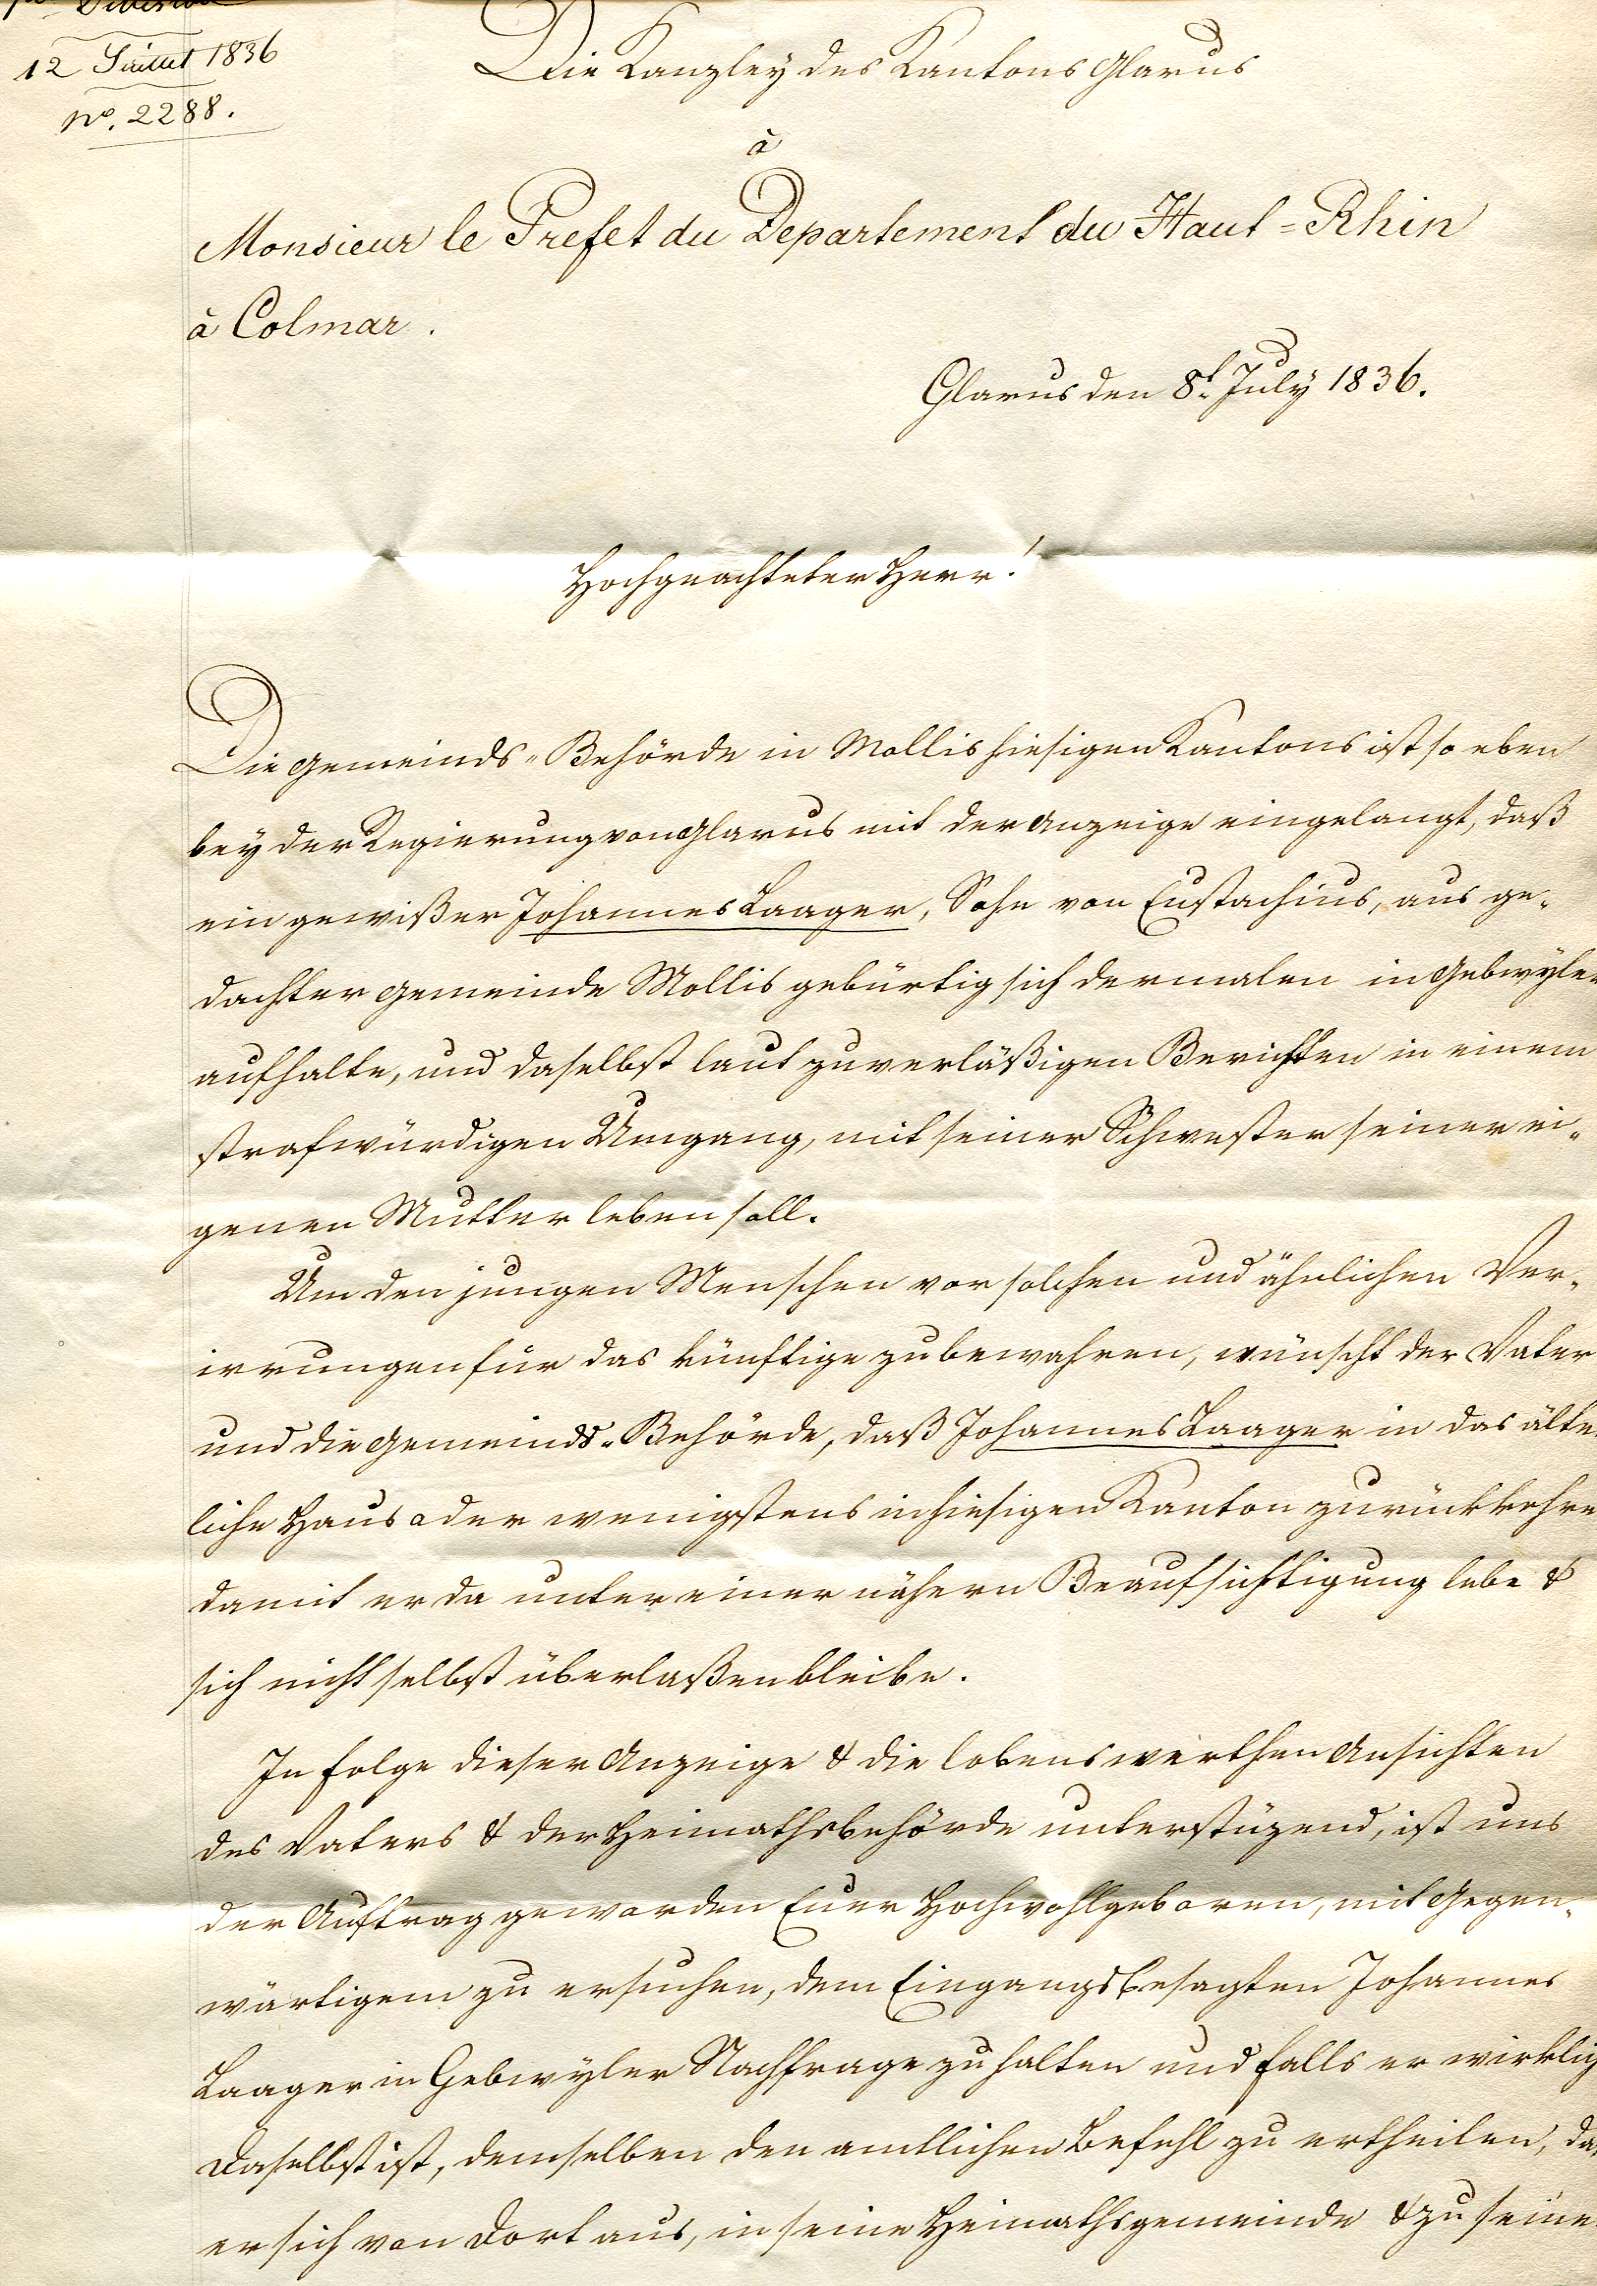 Division
12 Juillet 1836
No. 2288.
Die Kanzley des Kantons Glarus
à
Monsieur le Prefet du Departement du Haut=Rhin
à Colmar.
Glarus den 8t. July 1836.
Hochgeachteter Herr!
Die Gemeinds-Behörde in Mollis hiesigen Kantons ist so eben
bey der Regierung von Glarus mit der Anzeige eingelangt, daß
ein gewißer Johannes Laager, Sohn von Eustachius, aus ge-
dachter Gemeinde Mollis gebürtig sich dermalen in Gebwyler
aufhalte, und daselbst laut zuverläßigen Berichten in einem
strafwürdigen Umgang, mit seiner Schwester seiner ei-
genen Mutter leben soll.
Um den jungen Menschen vor solchen und ähnlichen Ver-
irrungen für das künftige zu bewahren, wünscht der Vater
und die Gemeinds-Behörde, daß Johannes Laager in das älter
liche Haus oder wenigstens in hiesigen Kanton zurückkehre
damit er da unter einer nähern Beaufsichtigung lebe &
sich nicht selbst überlaßen bleibe.
In Folge dieser Anzeige & die lobenswerthen Ansichten
des Vaters & der Heimathsbehörde unterstüzend, ist uns
der Auftrag geworden Euer Hochwohlgeboren, mit Gegen-
wärtigem zu ersuchen, dem Eingangs besagten Johannes
Laager in Gebwyler Nachfrage zu halten und falls er wirklich
daselbst ist, demselben den amtlichen Befehl zu ertheilen, daß
er sich von dort aus, in seine Heimathsgemeinde & zu seine